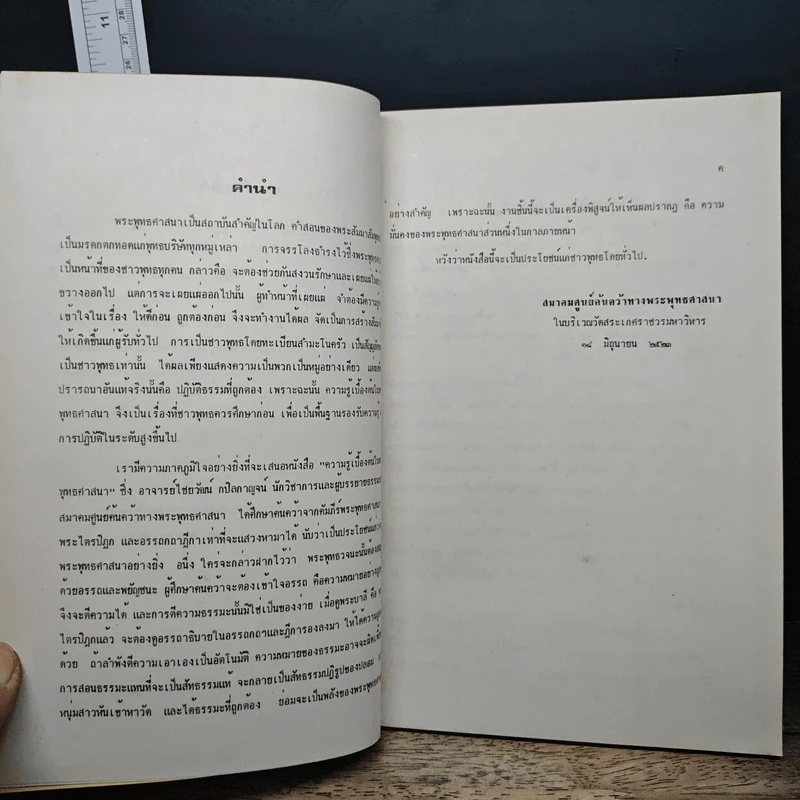 11
28
27
26
คำนำ
พระพุทธศาสนาเป็นสถาบันสำคัญในโลก คำสอนของพระสัมมาสัมพุทธ
เป็นมรดกตกทอดแก่พุทธบริษัททุกหมู่เหล่า การจรรโลงธำรงไว้ซึ่งพระพุทธศาส
เป็นหน้าที่ของชาวพุทธทุกคน กล่าวคือ จะต้องช่วยกันสงวนรักษาและเผยแผ่ให้
ขวางออกไป แต่การจะเผยแผ่ออกไปนั้น ผู้ทำหน้าที่เผยแผ่ จำต้องมีความรู้
เข้าใจในเรื่อง ให้ดีก่อน ถูกต้องก่อน จึงจะทำงานได้ผล จัดเป็นการสร้างสัมมา
ให้เกิดขึ้นแก่ผู้รับทั่วไป การเป็นชาวพุทธโดยทะเบียนสำมะโนครัว เป็นสัญญลักษ
เป็นชาวพุทธเท่านั้น ได้ผลเพียงแสดงความเป็นพวกเป็นหมู่อย่างเดียว
ปรารถนาอันแท้จริงนั้นคือ ปฏิบัติธรรมที่ถูกต้อง เพราะฉะนั้น ความรู้เบื้องต้น
พุทธศาสนา จึงเป็นเรื่องที่ชาวพุทธควรศึกษาก่อน เพื่อเป็นพื้นฐานรองรับความรู้
การปฏิบัติในระดับสูงขึ้นไป
เรามีความภาคภูมิใจอย่างยิ่งที่จะเสนอหนังสือ "ความรู้เบื้องต้นใน
พุทธศาสนา" ซึ่ง อาจารย์ไชยวัฒน์ กปิลกาญจน์ นักวิชาการและผู้บรรยายธรรม
สมาคมศูนย์ค้นคว้าทางพระพุทธศาสนา ได้ศึกษาค้นคว้าจากคัมภีร์พระพุทธศาสนา
พระไตรปิฎก และอรรถกถาฎีกาเท่าที่จะแสวงหามาได้ นับว่าเป็นประโยชน์แก่
พระพุทธศาสนาอย่างยิ่ง อนึ่ง ใคร่จะกล่าวฝากไว้ว่า พระพุทธวจนะนั้น
ด้วยอรรถและพยัญชนะ ผู้ศึกษาค้นคว้าจะต้องเข้าใจอรรถ คือความหมายอย่าง
จึงจะตีความได้ และการตีความธรรมะนั้นมิใช่เป็นของง่าย เมื่อดูพระบาลี คือ
ไตรปิฎกแล้ว จะต้องดูอรรถาธิบายในอรรถกถาและฎีการองลงมา ให้ได้ความ
ด้วย ถ้าลำพังตีความเอาเองเป็นอัตโนมัติ ความหมายของธรรมะอาจจะผิด
การสอนธรรมะแทนที่จะเป็นสัทธรรมแท้ จะกลายเป็นสัทธรรมปฏิรูปของปลอม
หนุ่มสาวหันเข้าหาวัด และได้ธรรมะที่ถูกต้อง ย่อมจะเป็นพลังของพระพุทธศาส
ค
อย่างสำคัญ เพราะฉะนั้น งานชิ้นนี้จะเป็นเครื่องพิสูจน์ให้เห็นผลปรากฏ คือ ความ
มั่นคงของพระพุทธศาสนาส่วนหนึ่งในกาลภายหน้า
หวังว่าหนังสือนี้จะเป็นประโยชน์แก่ชาวพุทธโดยทั่วไป.
สมาคมศูนย์ค้นคว้าทางพระพุทธศาสนา
ในบริเวณวัดสระเกศราชวรมหาวิหาร
๑๘ มิถุนายน ๒๕๒๓